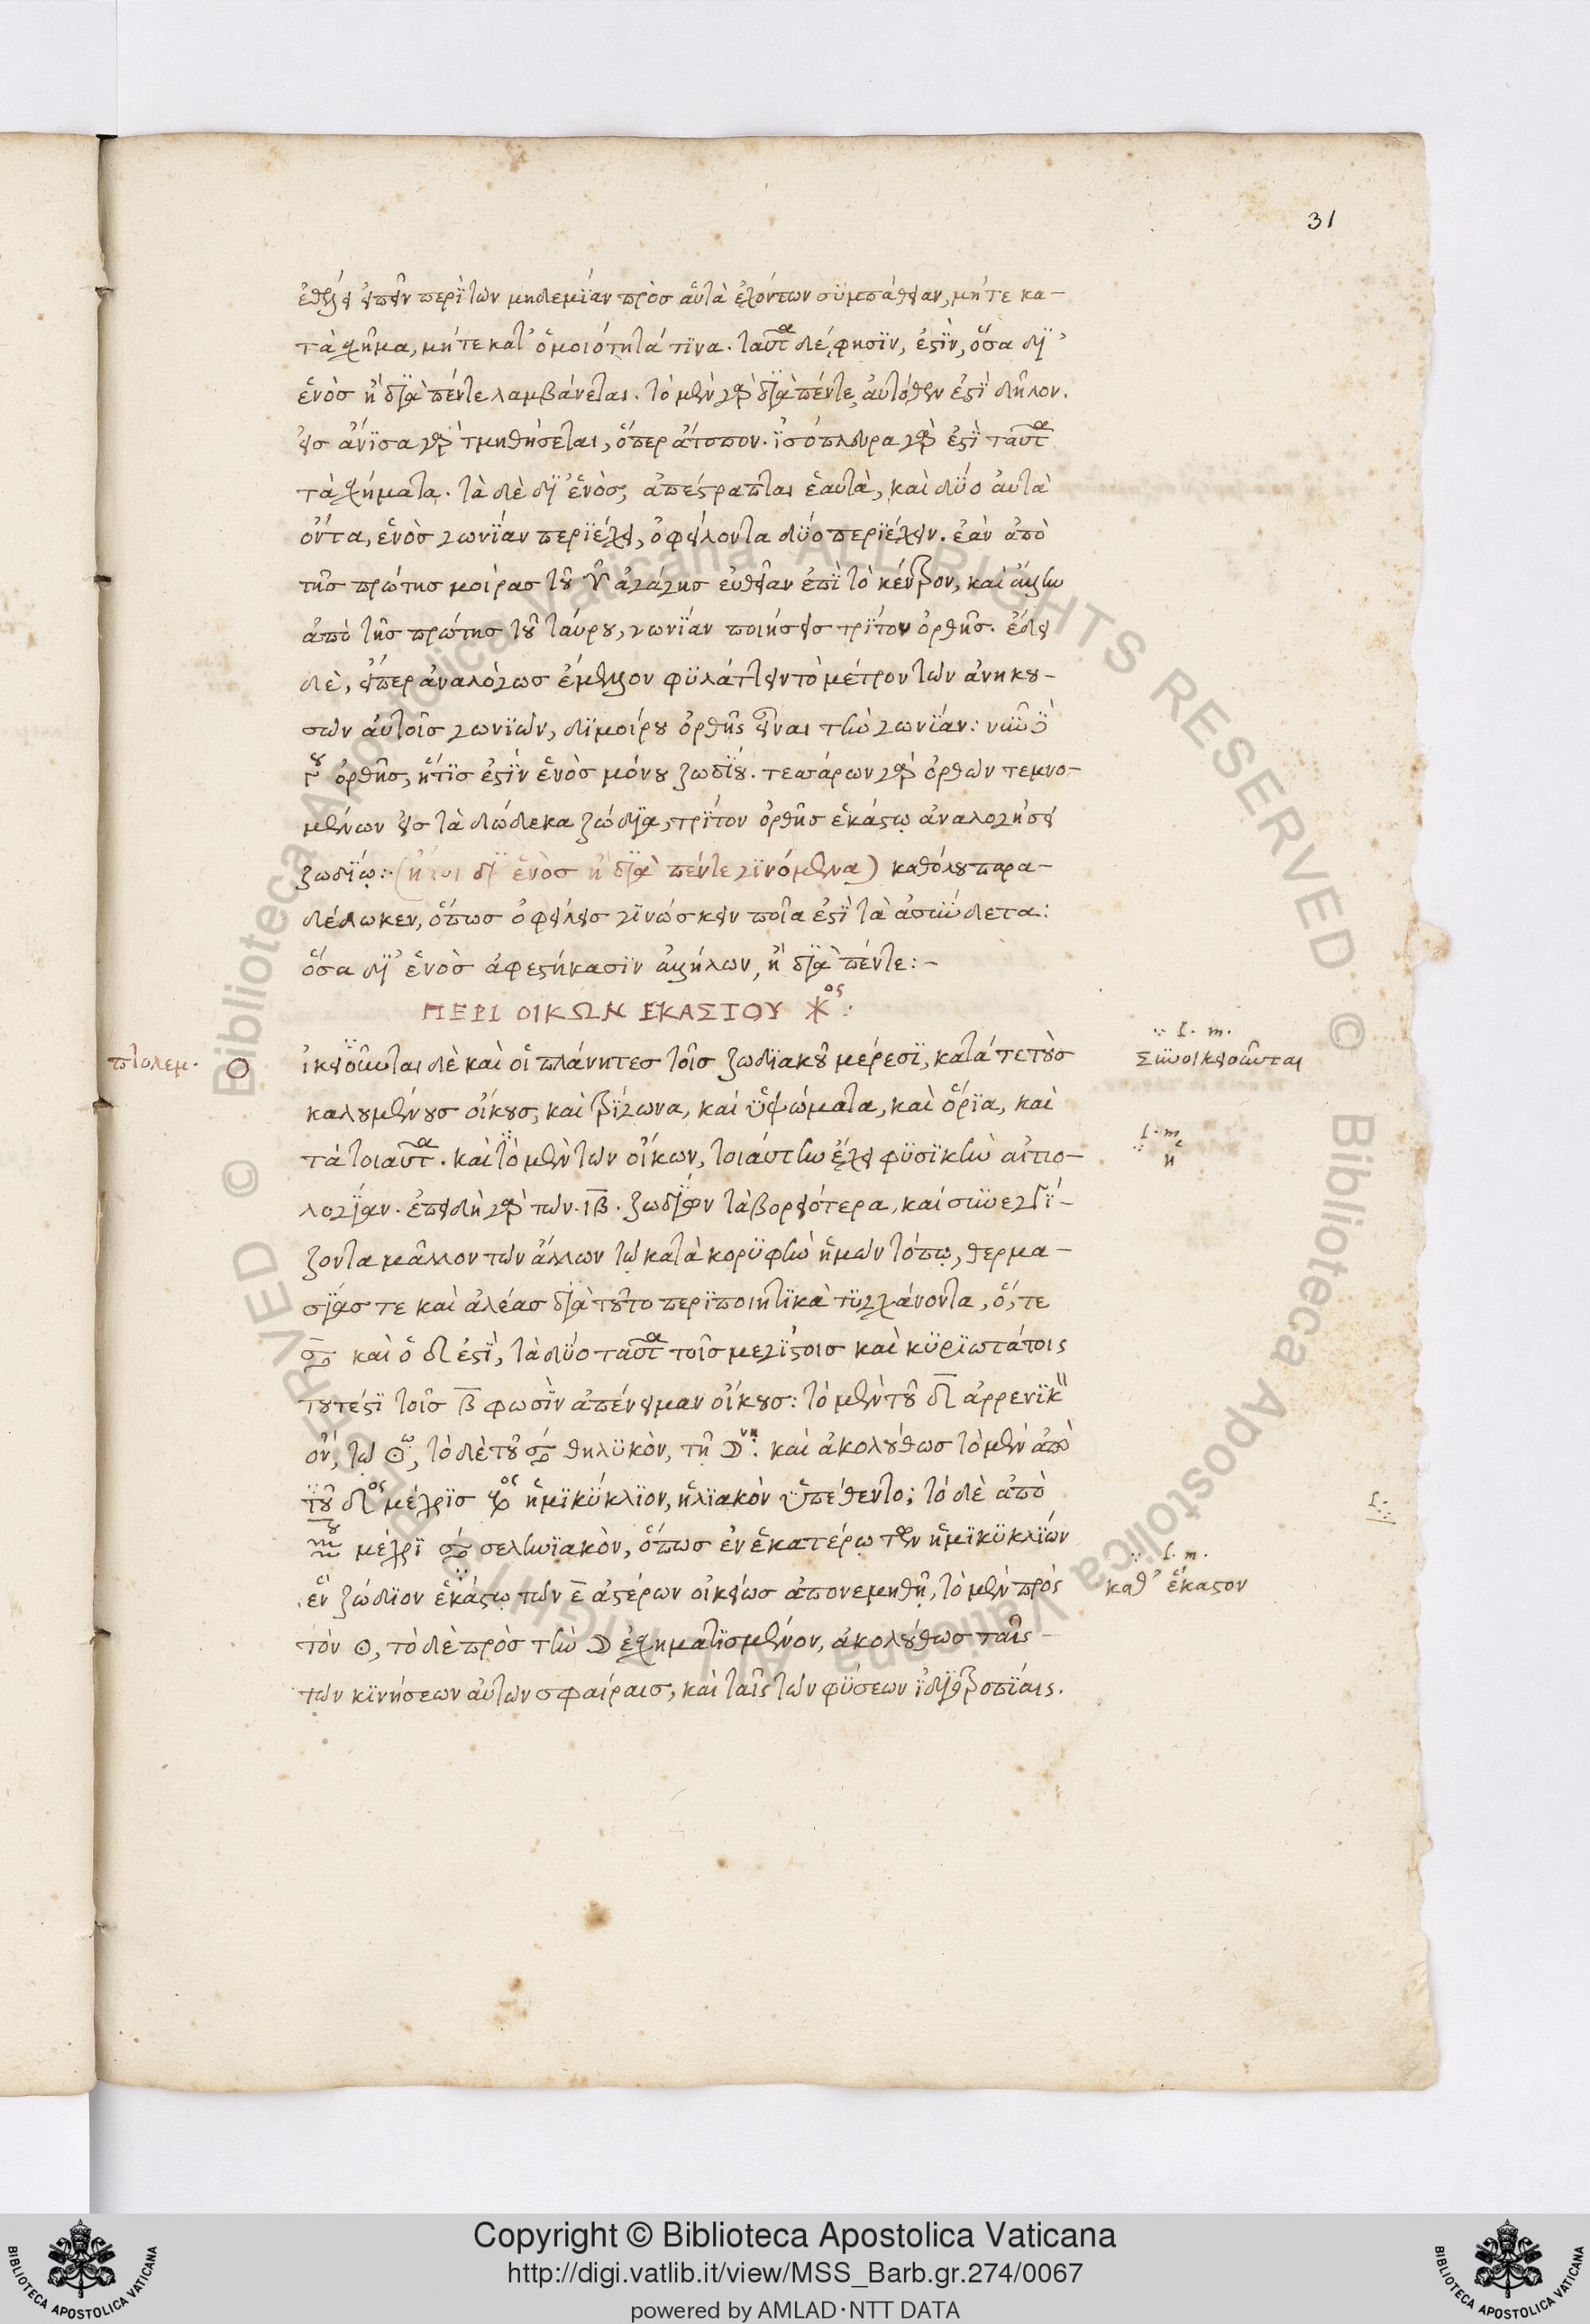 31
ἐθέλει εἰπεῖν περὶ τῶν μηδεμίαν πρὸσ αὐτὰ ἐχόντων συμπάθειαν, μήτε κα-
τὰ σχῆμα, μήτε κατ' ὁμοιότητά τινα. ταῦτα δέ, φησὶν, ἐστὶν, ὅσα δι'
ἑνὸσ ἢ διὰ πέντε λαμβάνεται. τὸ μὲν γὰρ διὰ πέντε, αὐτόθεν ἐστὶ δῆλον.
εἰσ ἄνισα γὰρ τμηθήσεται, ὅπερ ἄτοπον. ἰσόπλευρα γὰρ ἐστὶ ταῦτα
τὰ σχήματα. τὰ δὲ δι' ἑνὸσ, ἀπέστραπται ἑαυτὰ, καὶ δύο αὐτὰ
ὄντα, ἑνὸσ γωνίαν περιέχει, ὀφείλοντα δύο περιέχειν. ἐὰν ἀπὸ
τῆσ πρώτησ μοίρασ τοῦ ♈ ἀγάγησ εὐθεῖαν ἐπὶ τὸ κέντρον, καὶ ἄλλην
ἀπὸ τῆσ πρώτησ τοῦ ταύρου, γωνίαν ποιήσεισ τρίτον ὀρθῆσ. ἔδει
δὲ, εἴπερ ἀναλόγωσ ἔμελλον φυλάττειν τὸ μέτρον τῶν ἀνηκου-
σῶν αὐτοῖσ γωνιῶν, διμοίρου ὀρθῆς εἶναι τὴν γωνίαν: νῦν δὲ
γου ὀρθῆσ, ἥτισ ἐστὶν ἑνὸσ μόνου ζωδίου. τεσσάρων γὰρ ὀρθῶν τεμνο-
μένων εἰσ τὰ δώδεκα ζώδια, τρίτον ὀρθῆσ ἑκάστῳ ἀναλογήσει
ζωδίῳ: (ἤτοι δι' ἑνὸσ ἢ διὰ πέντε γινόμενα) καθόλου παρα-
δέδωκεν, ὅπωσ ὀφείλεισ γινώσκειν ποῖα ἐστὶ τὰ ἀσύνδετα:
ὅσα δι' ἑνὸσ ἀφεστήκασιν ἀλλήλων, ἢ διὰ πέντε:-
ΠΕΡΙ ΟΙΚΩΝ ΕΚΑΣΤΟΥ ✶ος:
πτολεμ.
οἰκειοῦνται δὲ καὶ οἱ πλάνητεσ τοῖσ ζωδιακοῦ μέρεσι, κατά τε τοὺσ
∵ ſ. m.
Συνοικειοῦνται
καλουμένουσ οἴκουσ, καὶ τρίγωνα, καὶ ὑψώματα, καὶ ὅρια, καὶ
τὰ τοιαῦτα. καὶ τὸ μὲν τῶν οἴκων, τοιαύτην ἔχει φυσικὴν αἰτιο-
ſ. m.
∴ ἡ
λογίαν. ἐπειδὴ γὰρ τῶν .ιβ. ζωδίων τὰ βορειότερα, καὶ συνεγγί-
ζοντα μᾶλλον τῶν ἄλλων τῷ κατὰ κορυφὴν ἡμῶν τόπῳ, θερμα-
σίας τε καὶ ἀλέασ διὰ τοῦτο περιποιητικὰ τυγχάνοντα, ὅ, τε
♋ καὶ ὁ ♌ ἐστὶ, τὰ δύο ταῦτα τοῖσ μεγίστοισ καὶ κυριωτάτοις
τουτέστι τοῖσ β φωσὶν ἀπένειμαν οἴκουσ: τὸ μὲν τοῦ ♌ ἀρρενικ
ὸν, τῷ ☉ῳ, τὸ δὲ τοῦ ♋ θηλυκὸν, τῇ ☽νῃ: καὶ ἀκολούθωσ τὸ μὲν ἀπὸ
τοῦ ♌ος μέχρισ ♑ος ἡμικύκλιον, ἡλιακὸν ὑπέθεντο; τὸ δὲ ἀπὸ
♒ου μέχρι ♋ σεληνιακὸν, ὅπωσ ἐν ἑκατέρῳ τῶν ἡμικυκλίων
ἓν ζώδιον ἑκάστῳ τῶν ε ἀστέρων οἰκείωσ ἀπονεμηθῇ, τὸ μὲν πρὸς
∵ ſ. m.
καθ' ἕκαστον
τὸν ☉, τὸ δὲ πρὸσ τὴν ☽ ἐσχηματισμένον, ἀκολούθωσ ταῖς-
τῶν κινήσεων αὐτῶν σφαίραισ, καὶ ταῖς τῶν φύσεων ἰδιοτροπίαις.
Copyright © Biblioteca Apostolica Vaticana
http://digi.vatlib.it/view/MSS_Barb.gr.274/0067
powered by AMLAD·NTT DATA